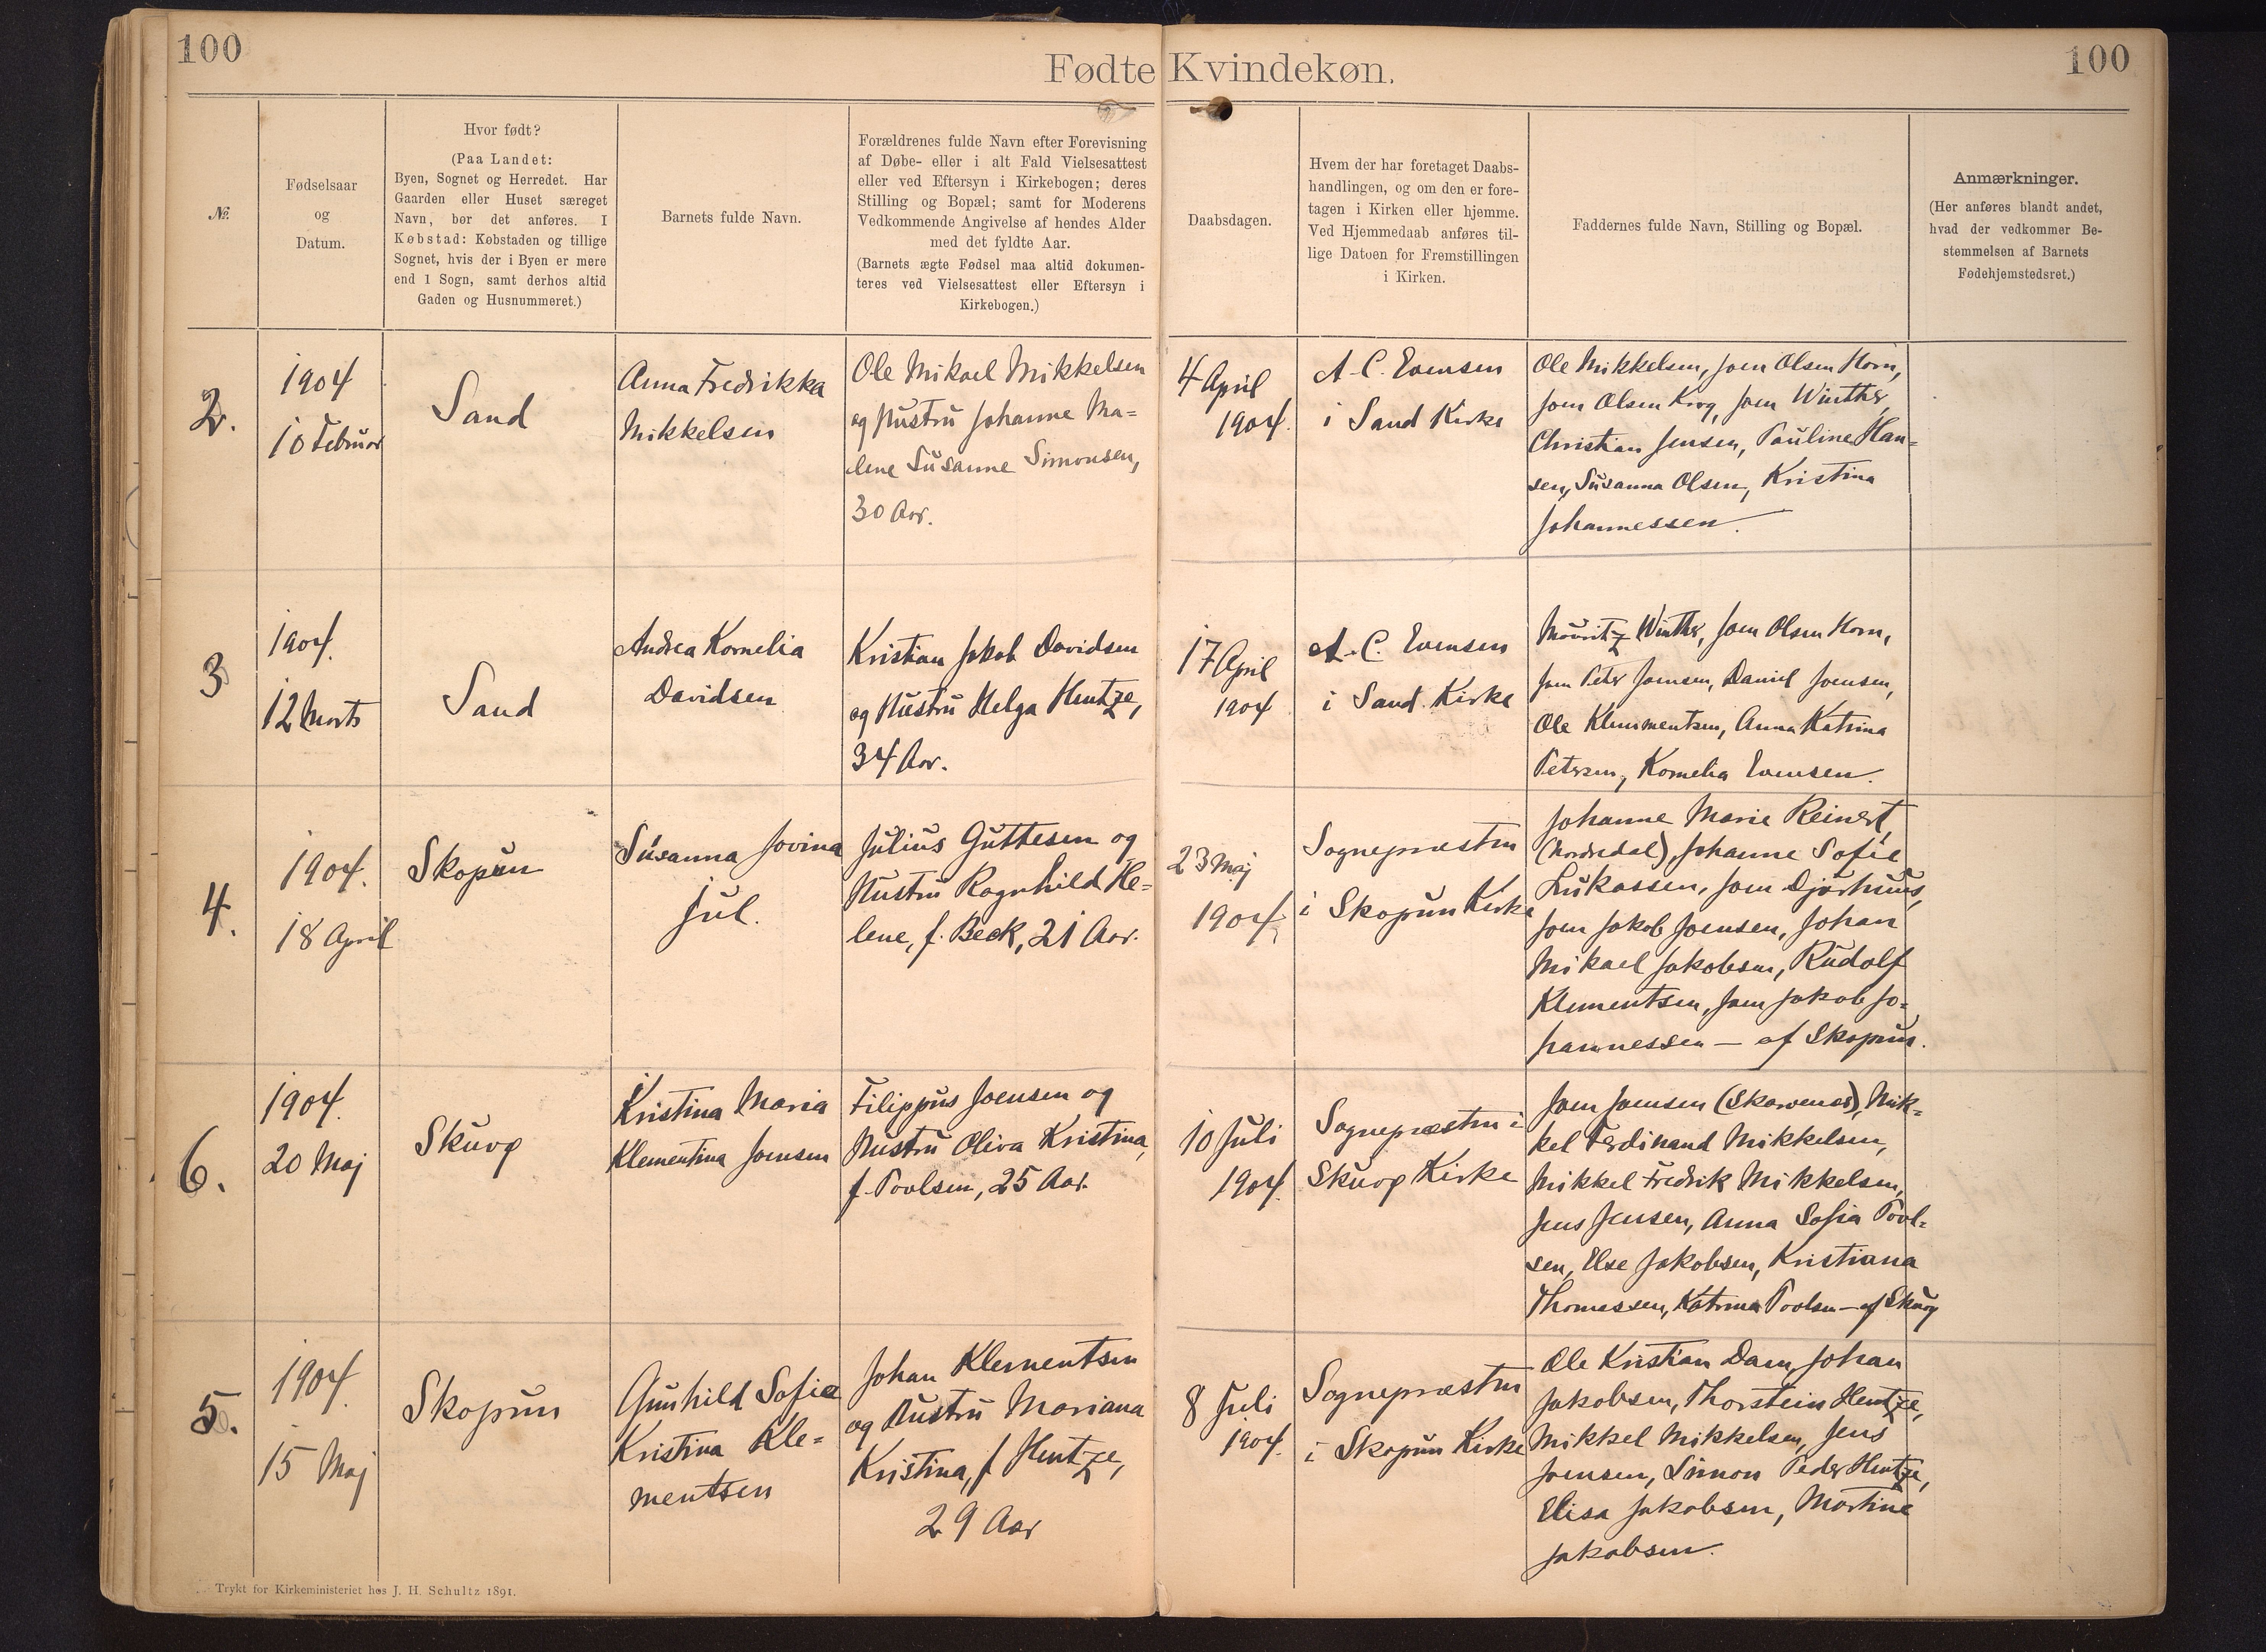 100
Fødte Kvindekøn.
100
№.
Fødselsaar
og
Datum.
Hvor født?
(Paa Landet:
Byen, Sognet og Herredet. Har
Gaarden eller Huset særeget
Navn, bør det anføres. I
Købstad: Købstaden og tillige
Sognet, hvis der i Byen er mere
end 1 Sogn, samt derhos altid
Gaden og Husnummeret.)
Barnets fulde Navn.
Forældrenes fulde Navn efter Forevisning
af Døbe- eller i alt Fald Vielsesattest
eller ved Eftersyn i Kirkebogen; deres
Stilling og Bopæl; samt for Moderens
Vedkommende Angivelse af hendes Alder
med det fyldte Aar.
(Barnets ægte Fødsel maa altid dokumen-
teres ved Vielsesattest eller Eftersyn i
Kirkebogen.)
Daabsdagen.
Hvem der har foretaget Daabs-
handlingen, og om den er fore-
tagen i Kirken eller hjemme.
Ved Hjemmedaab anføres til-
lige Datoen for Fremstillingen
i Kirken.
Faddernes fulde Navn, Stilling og Bopæl.
Anmærkninger.
(Her anføres blandt andet,
hvad der vedkommer Be-
stemmelsen af Barnets
Fødehjemstedsret.)
2.
1904
10 Februar
Sand
Anna Fredrikka
Mikkelsen
Ole Mikael Mikkelsen
og Hustru Johanne Ma=
lene Susanne Simonsen,
30 Aar.
4 April
1904.
A. C. Evensen
i Sand Kirke
Ole Mikkelsen, Joen Olsen Horn,
Joen Olsen Krog, Joen Winther,
Christian Jensen, Pauline Han=
sen, Susanna Olsen, Kristina
Johannessen.
3
1904.
12 Marts
Sand
Andrea Kornelia
Davidsen
Kristian Jakob Davidsen
og Hustru Helga Hentze,
34 Aar.
17 April
1904
A. C. Evensen
i Sand Kirke
Mouritz Winther, Joen Olsen Horn,
Joen Peter Joensen, Daniel Joensen,
Ole Klemmentsen, Anna Katrina
Petersen, Kornelia Evensen.
4.
1904.
18 April
Skopun
Susanna Jovina
Jul.
Julius Guttesen og
Hustru Ragnhild He=
lene, f. Beck, 21 Aar.
23 Maj
1904
Sognepræsten
i Skopun Kirke
Johanne Marie Reinert
(Nordredal), Johanne Sofie
Lukassen, Joen Djurhuus,
Joen Jakob Joensen, Johan
Mikael Jakobsen, Rudolf
Klementsen, Joen Jakob Jo=
hannessen — af Skopun.
6.
1904.
20 Maj
Skuvø
Kristina Maria
Klementina Joensen
Filippus Joensen og
Hustru Oliva Kristina,
f. Poulsen, 25 Aar.
10 Juli
1904.
Sognepræsten i
Skuvø Kirke
Joen Joensen (Skarvenes), Mik=
kel Ferdinand Mikkelsen,
Mikkel Fredrik Mikkelsen,
Jens Jensen, Anna Sofia Poul=
sen, Else Jakobsen, Kristiana
Thomassen, Katrina Poulsen — af Skuvø
5.
1904.
15 Maj
Skopun
Gunhild Sofie
Kristina Kle=
mentsen
Johan Klementsen
og Hustru Mariana
Kristina, f Hentze,
29 Aar
8 Juli
1904.
Sognepræsten
i Skopun Kirke
Ole Kristian Dam, Johan
Jakobsen, Thorstein Hentze,
Mikkel Mikkelsen, Jens
Joensen, Simon Peder Hentze,
Elisa Jakobsen, Martine
Jakobsen.
Trykt for Kirkeministeriet hos J. H. Schultz 1891.